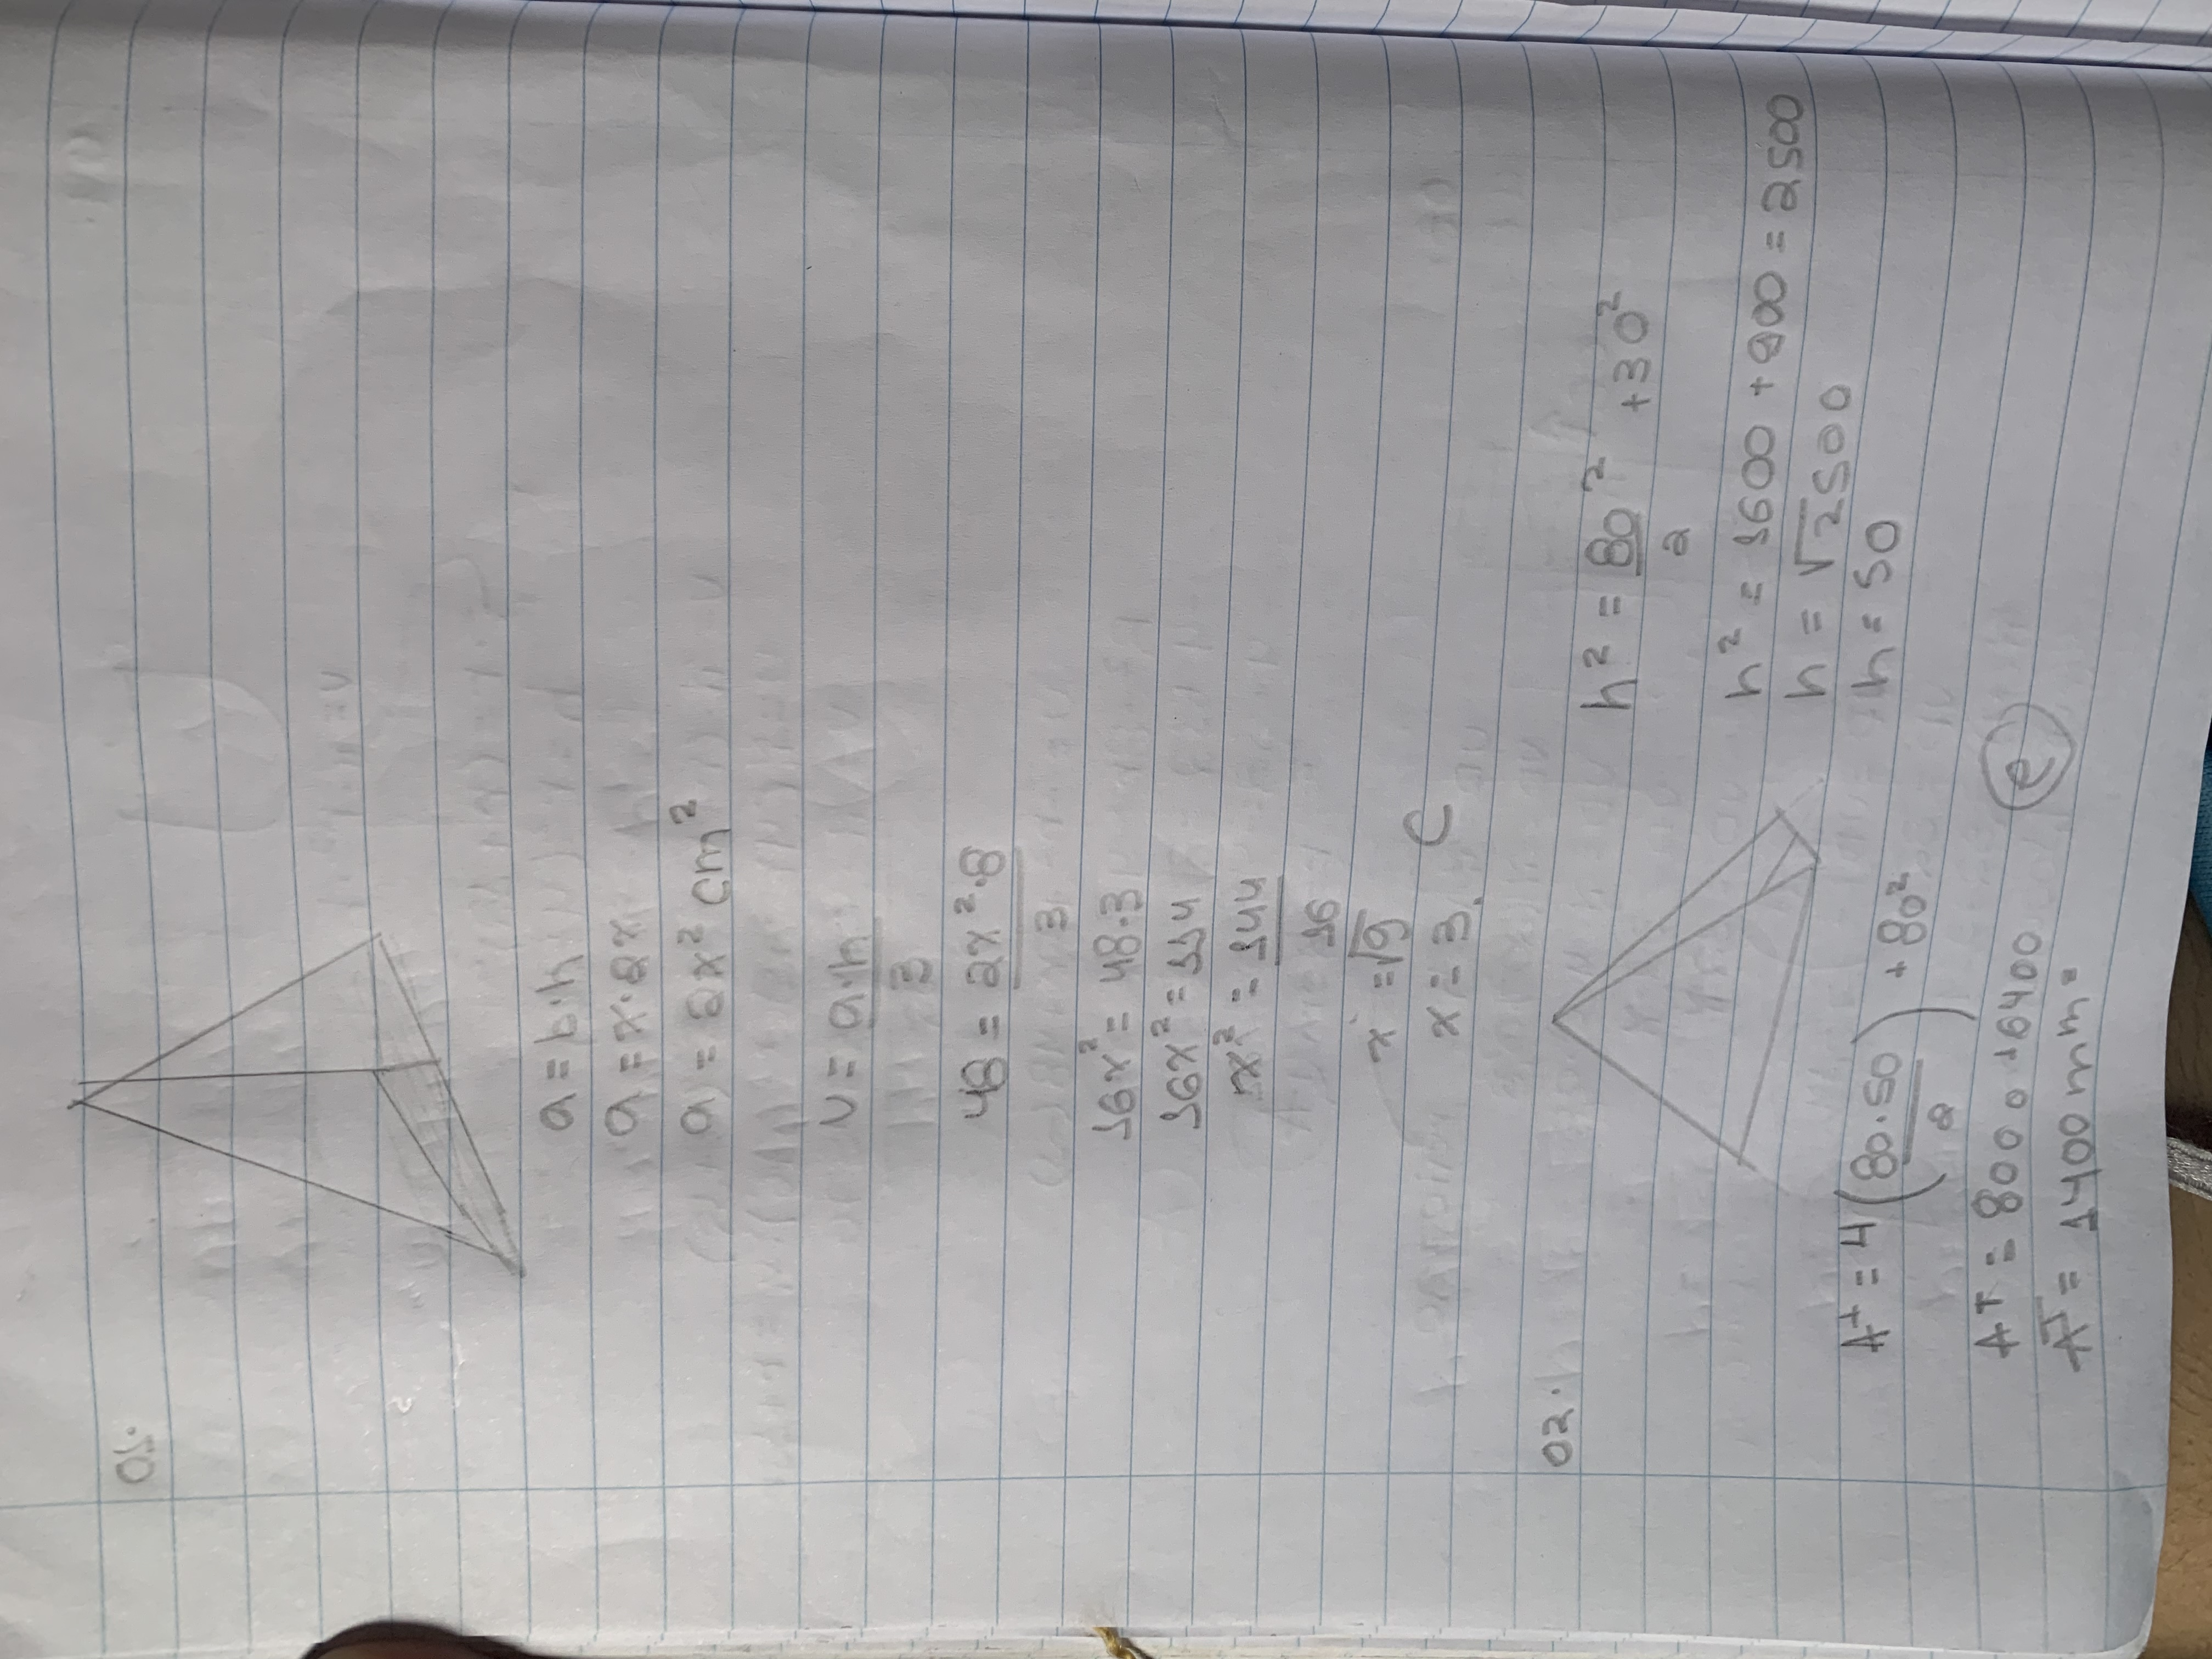 01.
a = b·h
a = x·2x
a = 2x² cm²
v = a·h
3
48 = 2x²·8
3
16x² = 48·3
16x² = 114
x² = 144
16
x = √9
x = 3. C
02.
h² = 80² + 30²
2
h² = 1600 + 900 = 2500
h = √2500
h = 50
AT = 4 (80·50) + 80²
2
AT = 8000 + 6400
AT = 1400 mm²
e